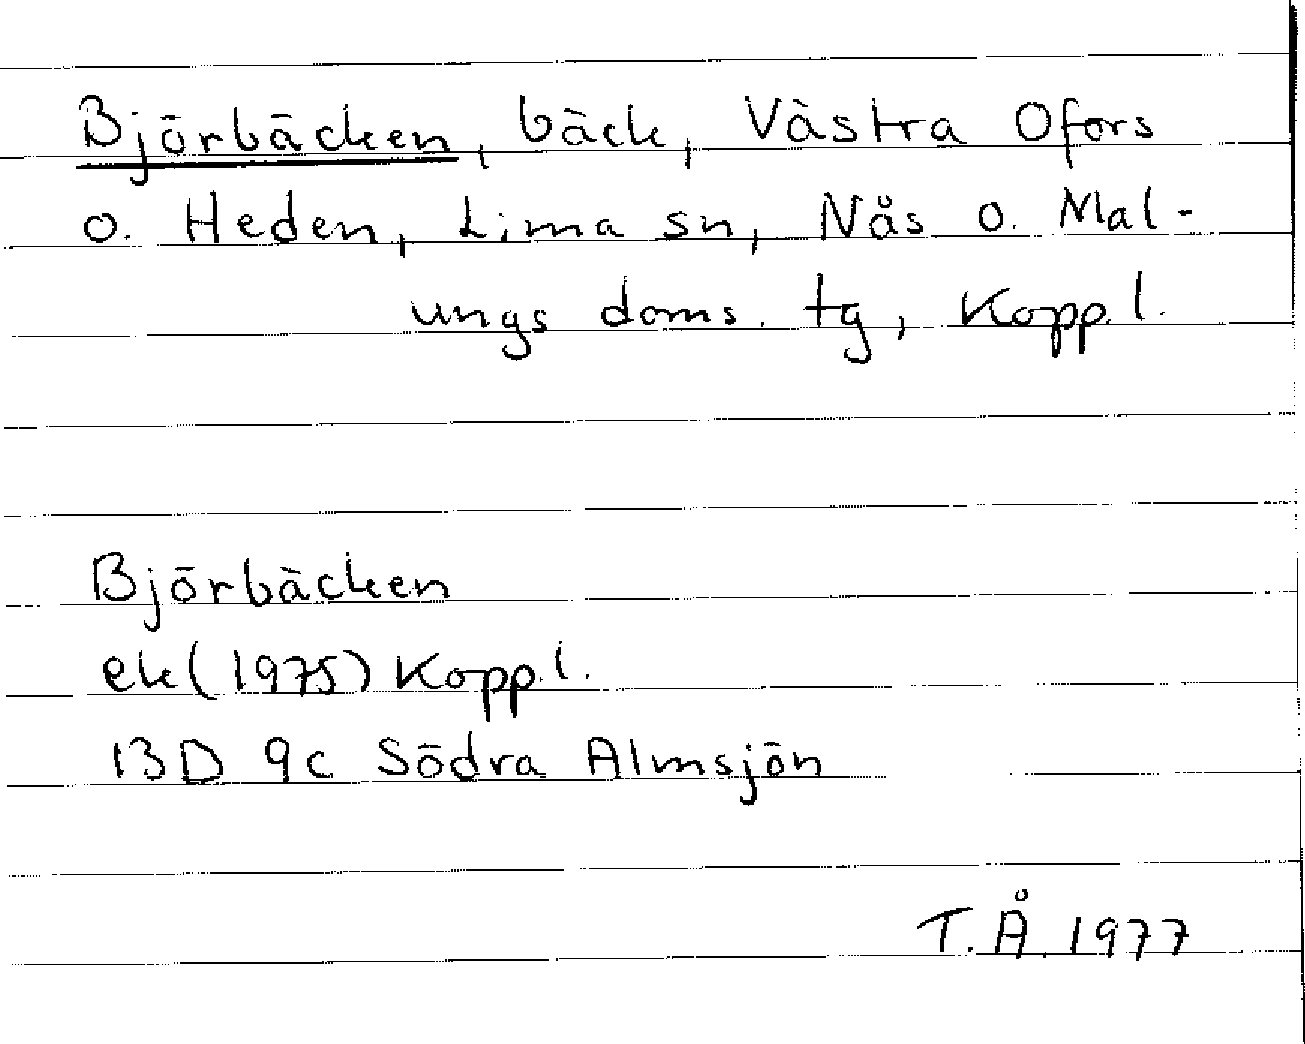 Björbäcken, bäck, Västra Ofors
o. Heden, Lima sn, Nås o. Mal-
ungs doms. tg, Kopp. l.
Björbäcken
ek (1975) Kopp. l.
13D 9c Södra Almsjön
T. Å. 1977